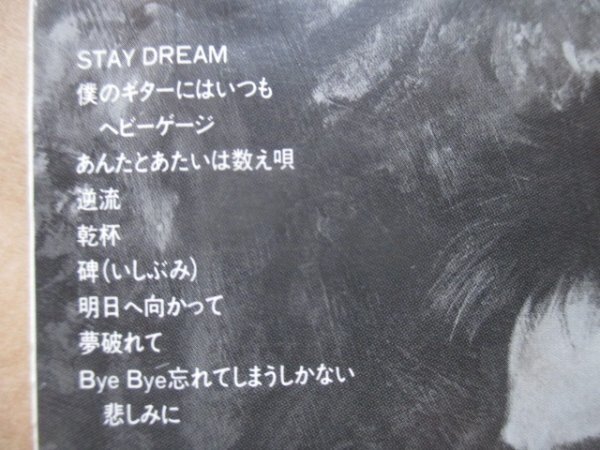 STAY DREAM
僕のギターにはいつも
ヘビーゲージ
あんたとあたいは数え唄
逆流
乾杯
碑(いしぶみ)
明日へ向かって
夢破れて
Bye Bye忘れてしまうしかない
悲しみに